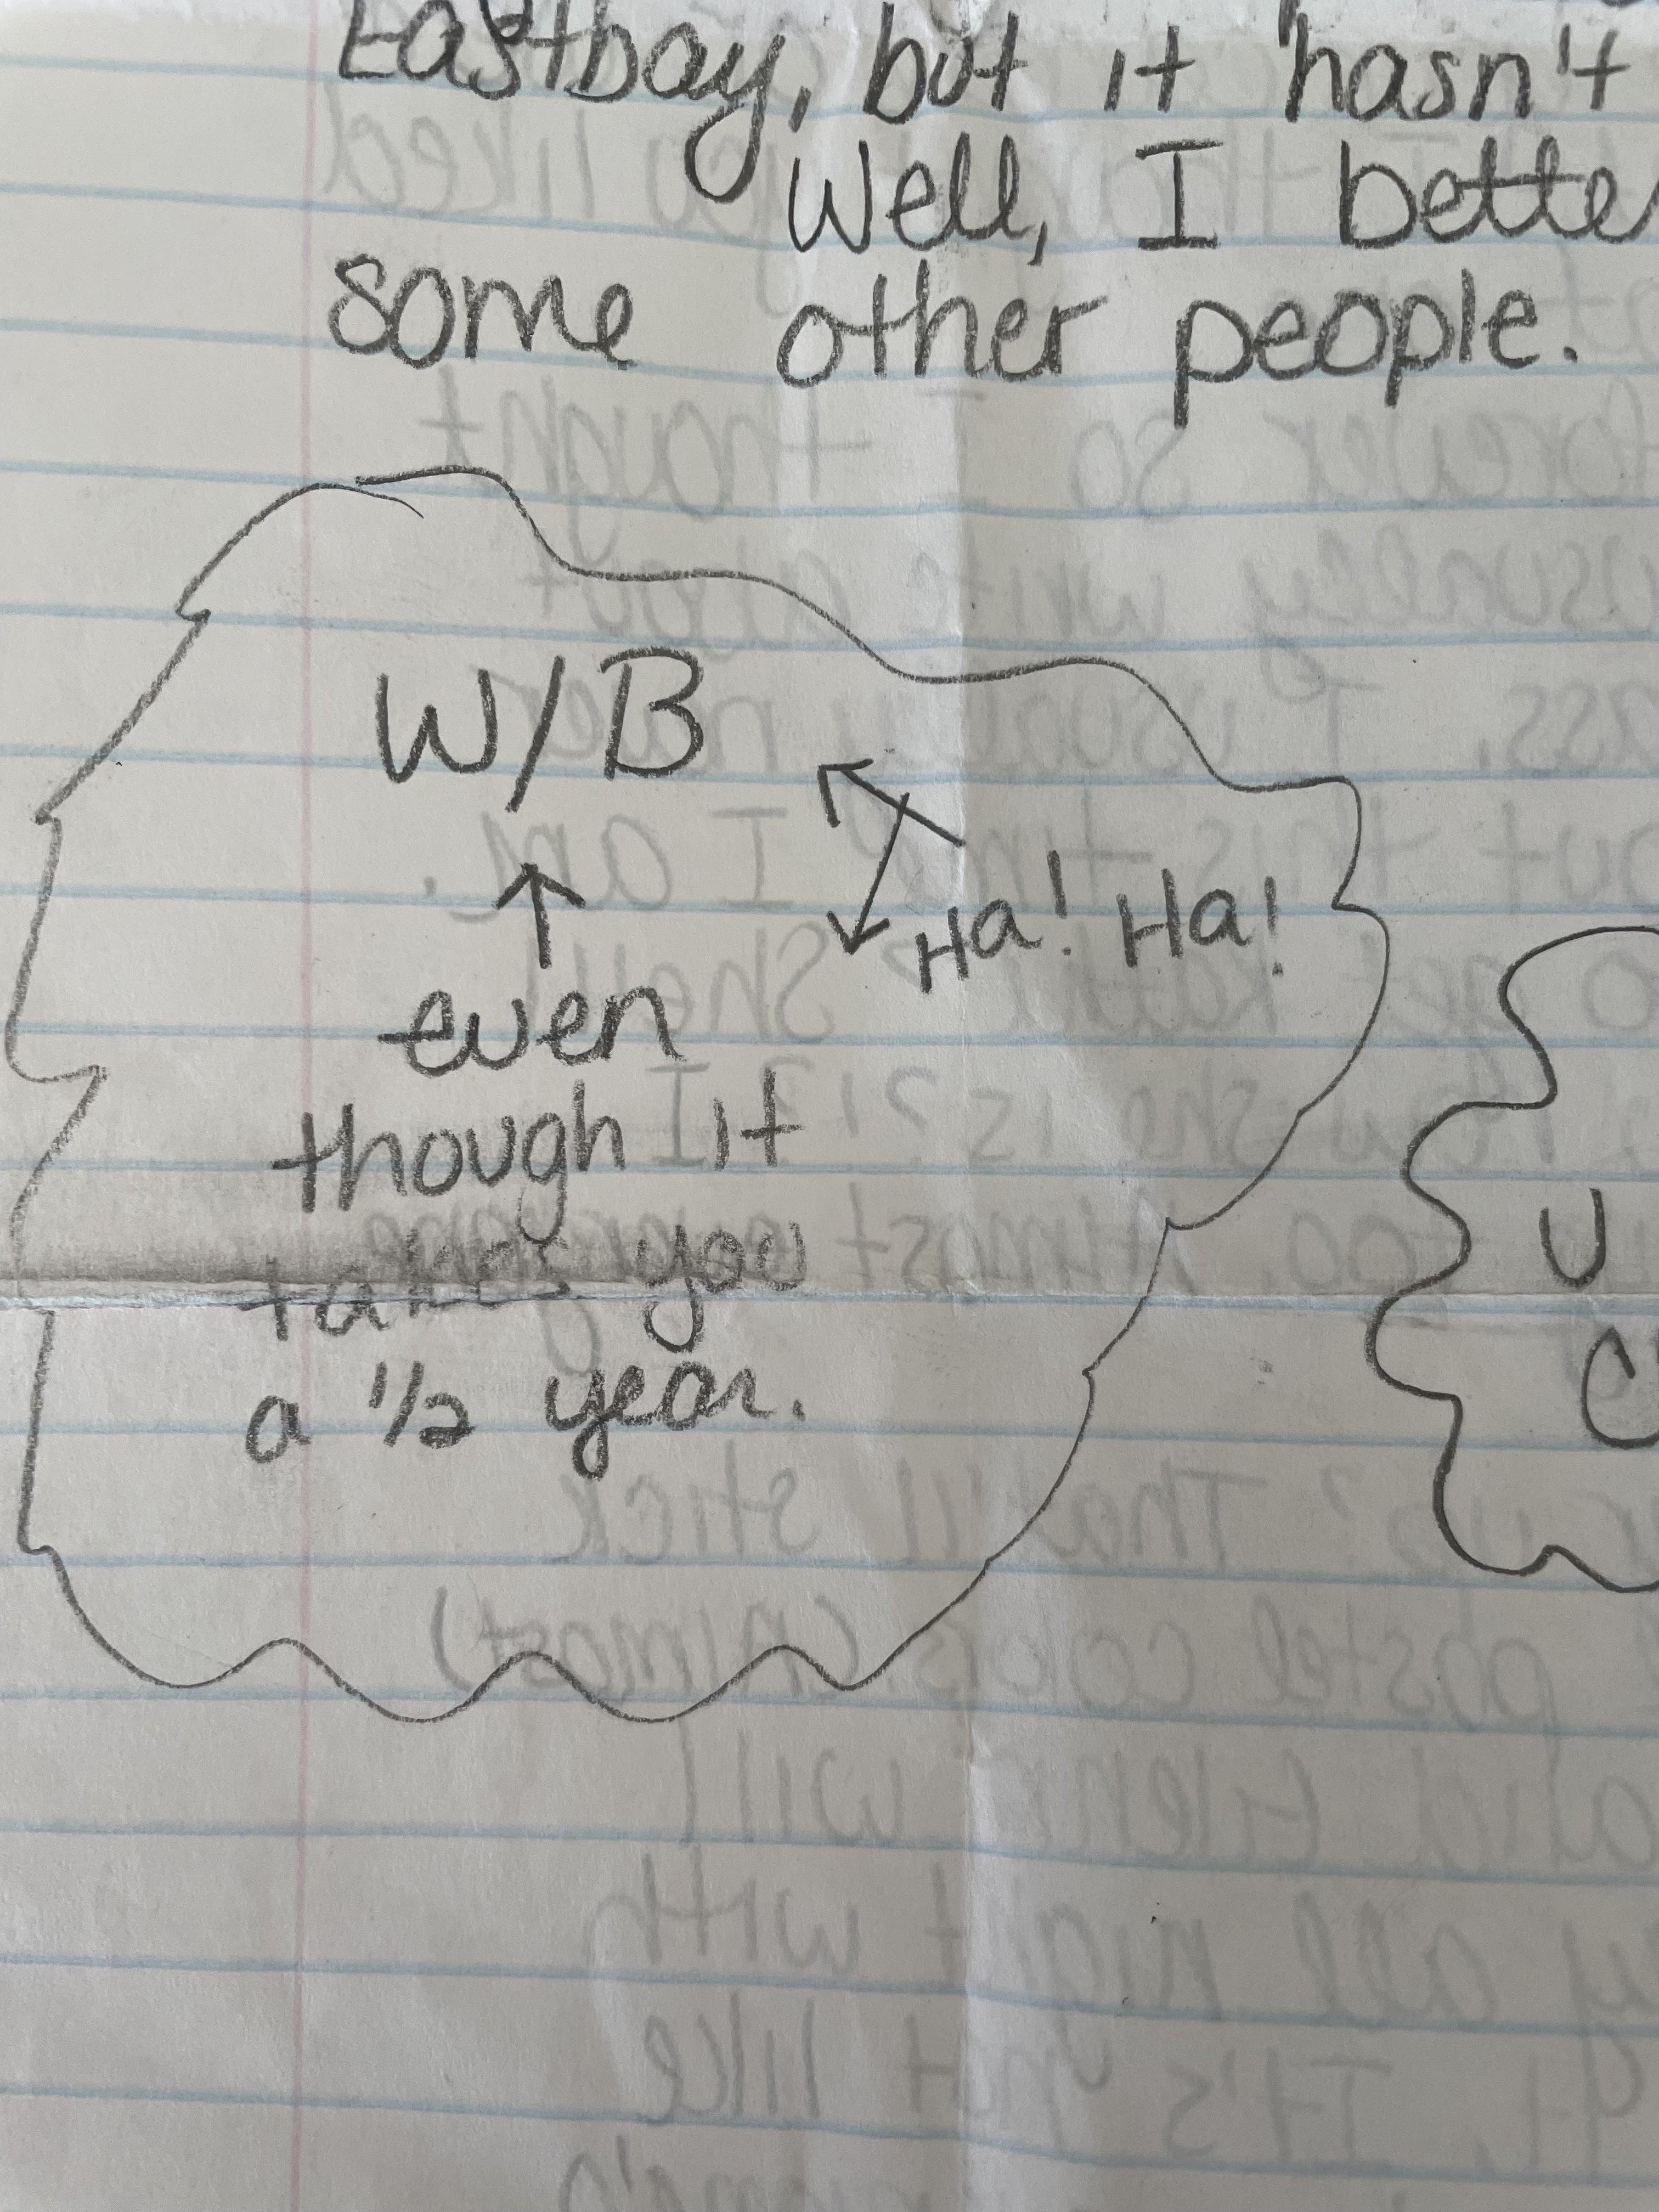 Eastbay, but it hasn't
Well, I bette
some other people.
W/B
Ha! Ha!
even
though it
takes you
a 1/2 year.
U